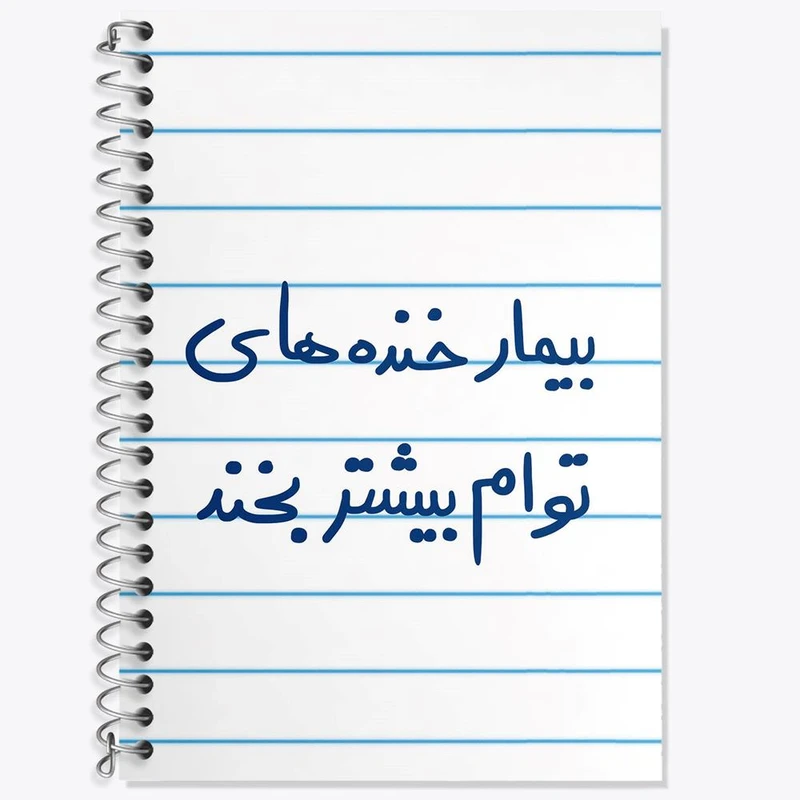 بیمار خنده های
توام بیشتر بخند